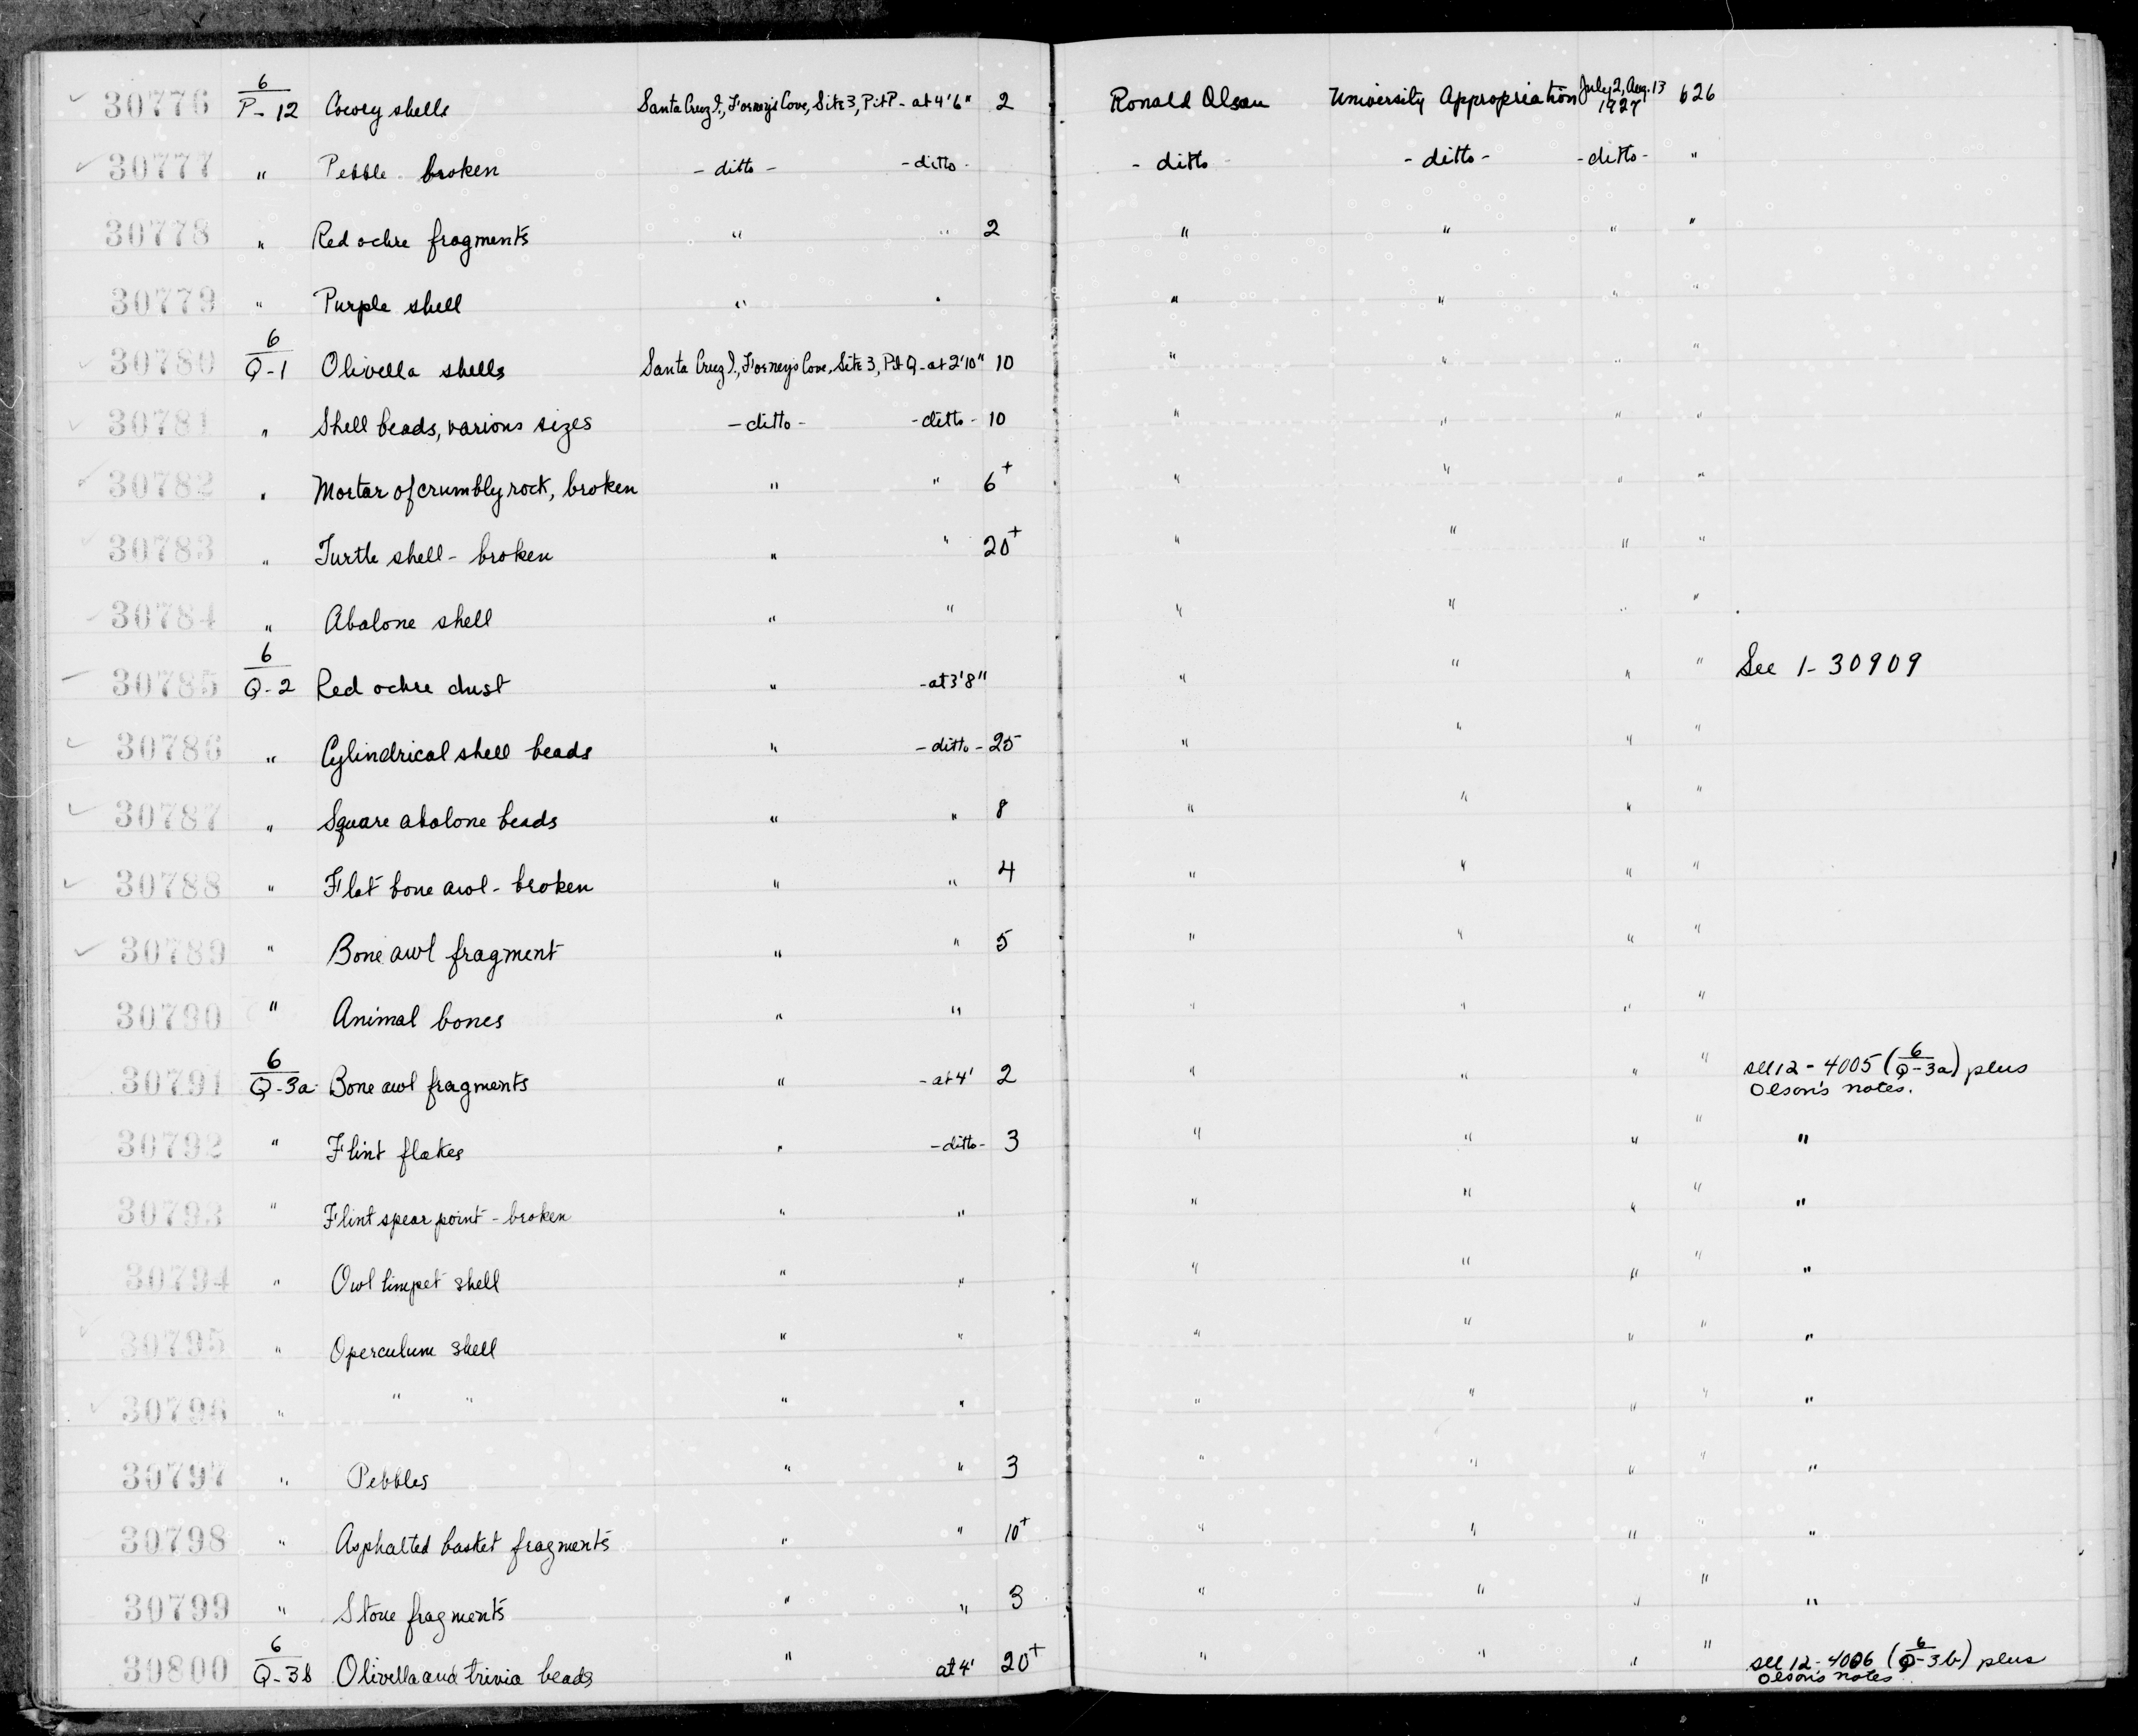 30776 6/P-12 Cowry shells Santa Cruz I., Forney's Cove, Site 3, Pit P - at 4'6" 2 Ronald Olson University Appropriation July 2, Aug. 13 1927 626
30777 " Pebble broken - ditto - - ditto - - ditto - ditto - - ditto - "
30778 " Red ochre fragments " " 2 " " " "
30779 " Purple shell " " " " " "
30780 6/Q-1 Olivella shells Santa Cruz I., Forney's Cove, Site 3, Pit Q - at 2'10" 10 " " " "
30781 " Shell beads, various sizes - ditto - - ditto - 10 " " " "
30782 " Mortar of crumbly rock, broken " " 6+ " " " "
30783 " Turtle shell - broken " " 20+ " " " "
30784 " Abalone shell " " " " " "
30785 6/Q-2 Red ochre dust " - at 3'8" " " " " See 1-30909
30786 " Cylindrical shell beads " - ditto - 25 " " " "
30787 " Square abalone beads " " 8 " " " "
30788 " Flat bone awl - broken " " 4 " " " "
30789 " Bone awl fragment " " 5 " " " "
30790 " Animal bones " " " " " "
30791 6/Q-3a Bone awl fragments " - at 4' 2 " " " " see 12-4005 (6/Q-3a) plus
Olson's notes.
30792 " Flint flakes " - ditto - 3 " " " " "
30793 " Flint spear point - broken " " " " " " "
30794 " Owl limpet shell " " " " " " "
30795 " Operculum shell " " " " " " "
30796 " " " " " " " " " "
30797 " Pebbles " " 3 " " " " "
30798 " Asphalted basket fragments " " 10+ " " " " "
30799 " Stone fragments " " 3 " " " " "
30800 6/Q-3b Olivella and trivia beads " at 4' 20+ " " " " see 12-4006 (6/Q-3b) plus
Olson's notes